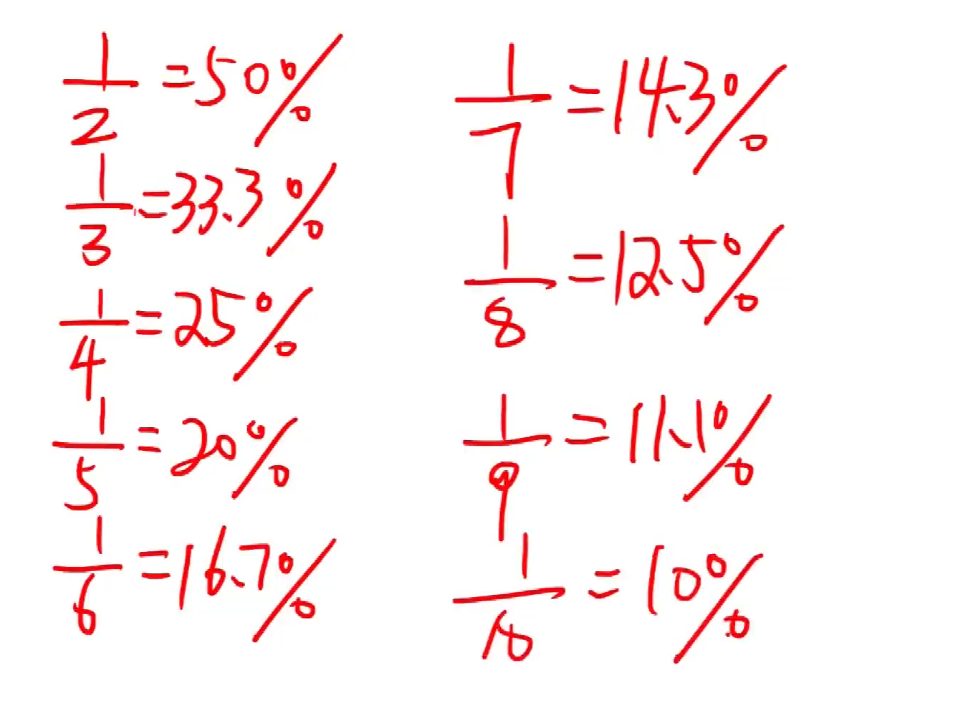 1/2 = 50%
1/3 = 33.3%
1/4 = 25%
1/5 = 20%
1/6 = 16.7%
1/7 = 14.3%
1/8 = 12.5%
1/9 = 11.1%
1/10 = 10%